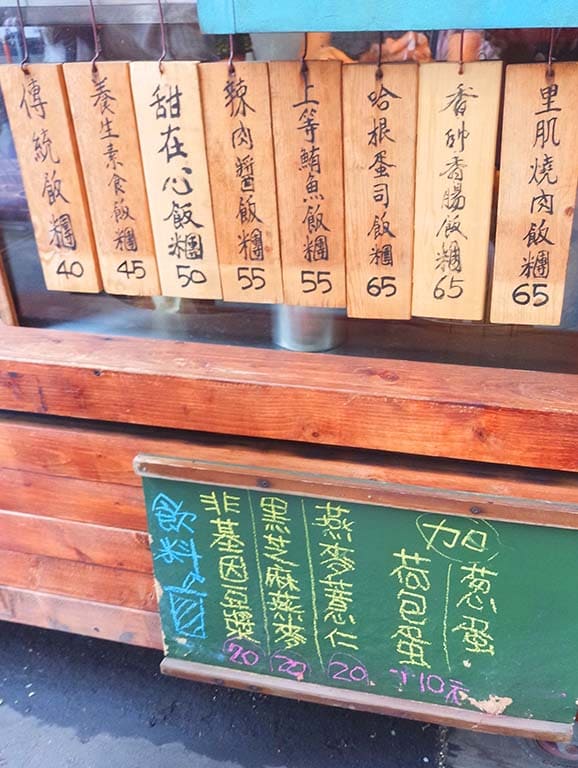 傳統飯糰 40
養生素食飯糰 45
甜在心飯糰 50
辣肉醬飯糰 55
上等鮪魚飯糰 55
哈根蛋司飯糰 65
香帥香腸飯糰 65
里肌燒肉飯糰 65
飲料區
非基因豆漿 20
黑芝麻燕麥 20
燕麥薏仁 20
加
蔥蛋
荷包蛋
10元